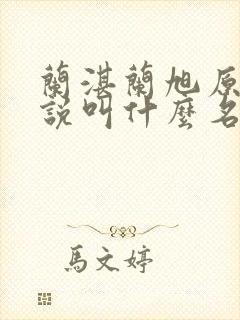 蘭湛蘭旭原
說叫什麼名
馬文婷